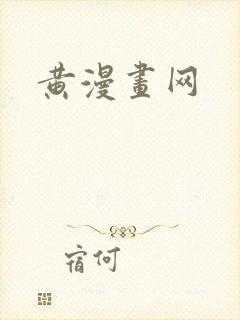 黄漫畫网
宿何